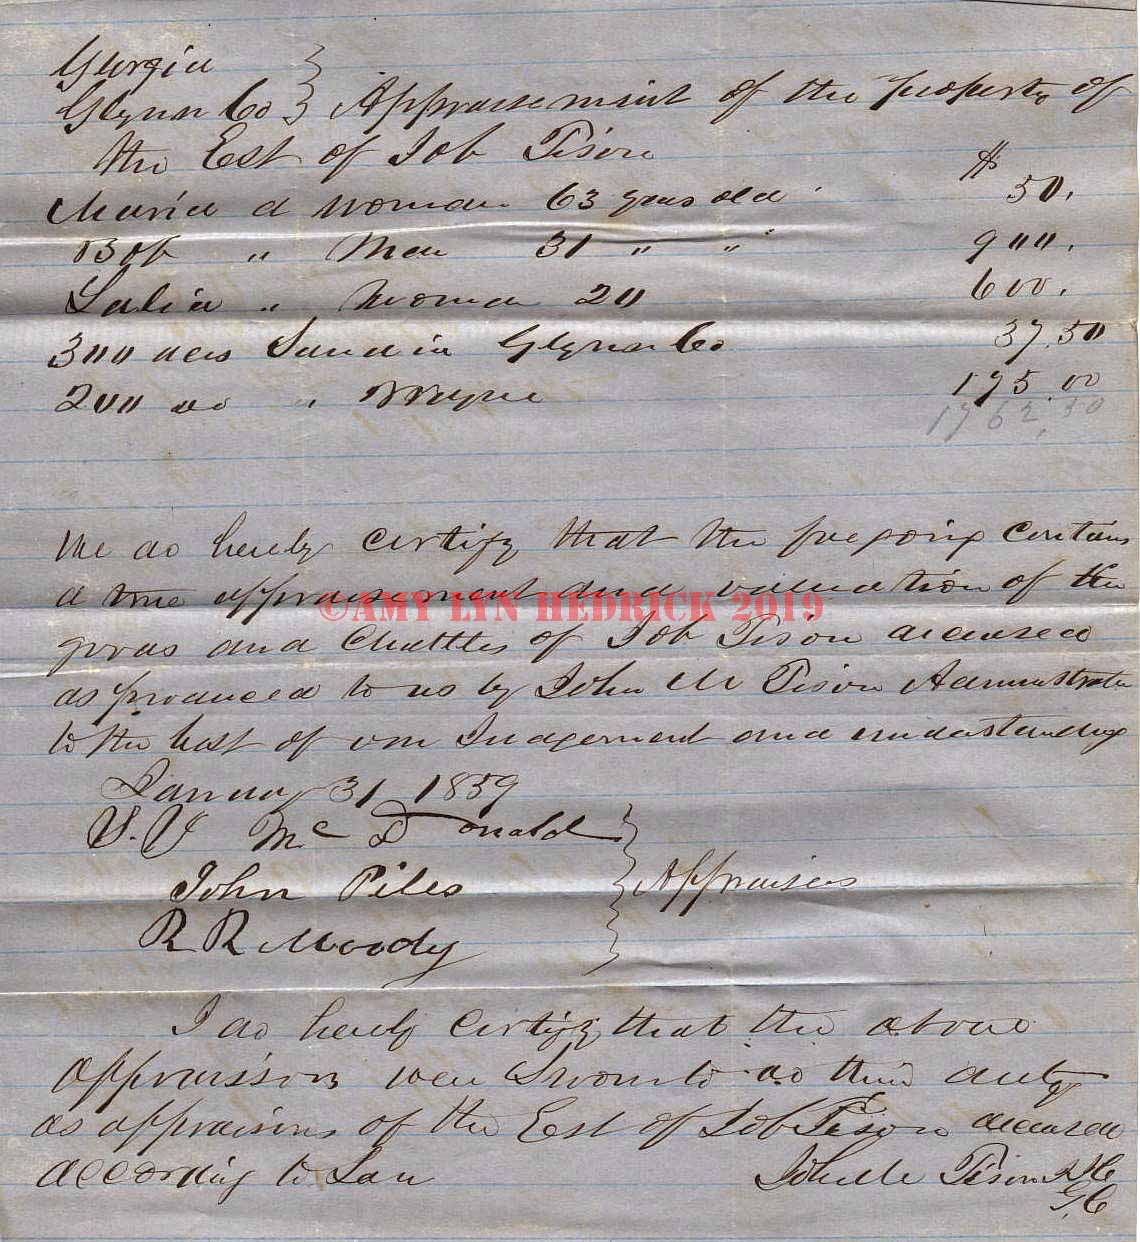 Georgia
Glynn Co } Appraisement of the property of
the Est of Job Tison $
Maria a woman 63 years old 50.
Bob " Man 31 " " 900.
" Woman 20 600.
300 acs Land in Glynn Co 37.50
200 do " Wayne 175.00
1762.50
We do hereby certify that the foregoing contains
a true appraisement and valuation of the
©AMY LYN HEDRICK 2019
goods and Chattles of Job Tison deceased
as produced to us by John M Tison Administrator
to the best of our Judgement and understanding
January 31 1859
McDonald
John Piles } Appraisers
R R Moody
I do hereby certify that the above
appraisors were Sworn to do their duty
as appraisors of the Est of Job Tison deceased
according to Law John M Tison JIC
G.C